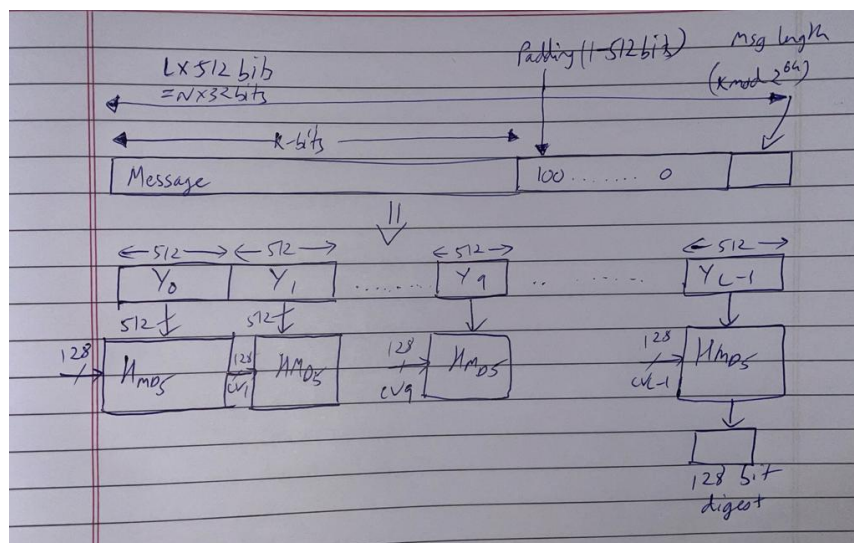 L x 512 bits
= N x 32 bits
Padding (1-512 bits)
Msg length
(K mod 2^64)
K-bits
Message
100 ........ 0
512
512
512
512
Y0
Y1
........
Yq
.. ......
YL-1
512
512
128
HMD5
128
CV1
HMD5
128
CVq
HMD5
128
CVL-1
HMD5
128 bit
digest